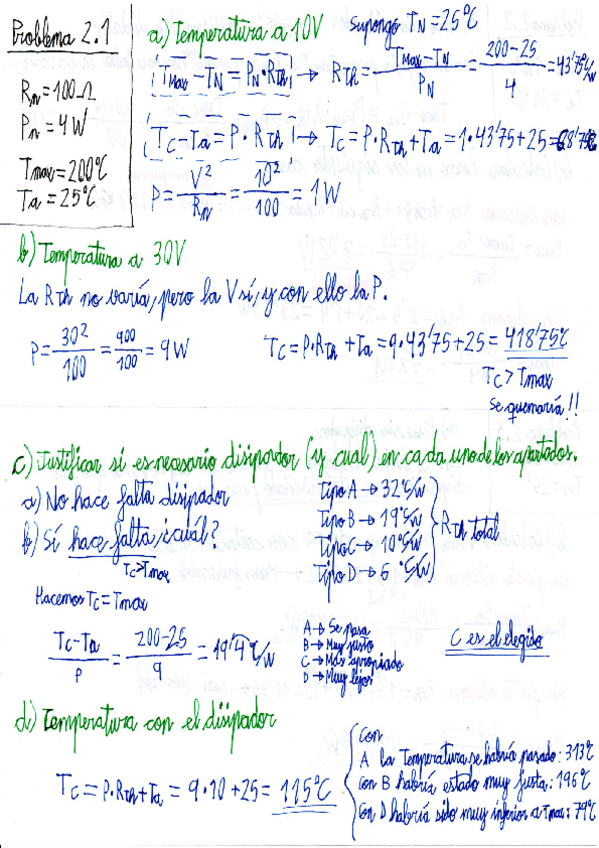 Problema 2.1
Rn = 100 Ω
Pn = 4W
Tmax = 200ºC
Ta = 25ºC
a) Temperatura a 10V Supongo TN = 25ºC
TMax - TN = PN · Rth → Rth = (TMax - TN)/PN = (200 - 25)/4 = 43'75ºC/W
TC - Ta = P · Rth → TC = P · Rth + Ta = 1 · 43'75 + 25 = 68'75ºC
P = V²/Rn = 10²/100 = 1W
b) Temperatura a 30V
La Rth no varía, pero la V sí, y con ello la P.
P = 30²/100 = 900/100 = 9W TC = P · Rth + Ta = 9 · 43'75 + 25 = 418'75ºC
TC > Tmax
Se quemaría!!
c) Justificar si es necesario disipador (y cual) en cada uno de los apartados.
a) No hace falta disipador
b) Sí hace falta ¿cuál?
TC > Tmax
Tipo A → 32ºC/W
Tipo B → 19ºC/W
Tipo C → 10ºC/W
Tipo D → 6ºC/W
Rth total
Hacemos TC = Tmax
(TC - Ta)/P = (200 - 25)/9 = 19'4ºC/W
A → Se pasa
B → Muy justo
C → Más apropiado
D → Muy lejos
C es el elegido
d) Temperatura con el disipador
TC = P · Rth + Ta = 9 · 10 + 25 = 115ºC
Con
A la Temperatura se habría pasado: 313ºC
Con B habría estado muy justa: 196ºC
Con D habría sido muy inferior a Tmax: 79ºC